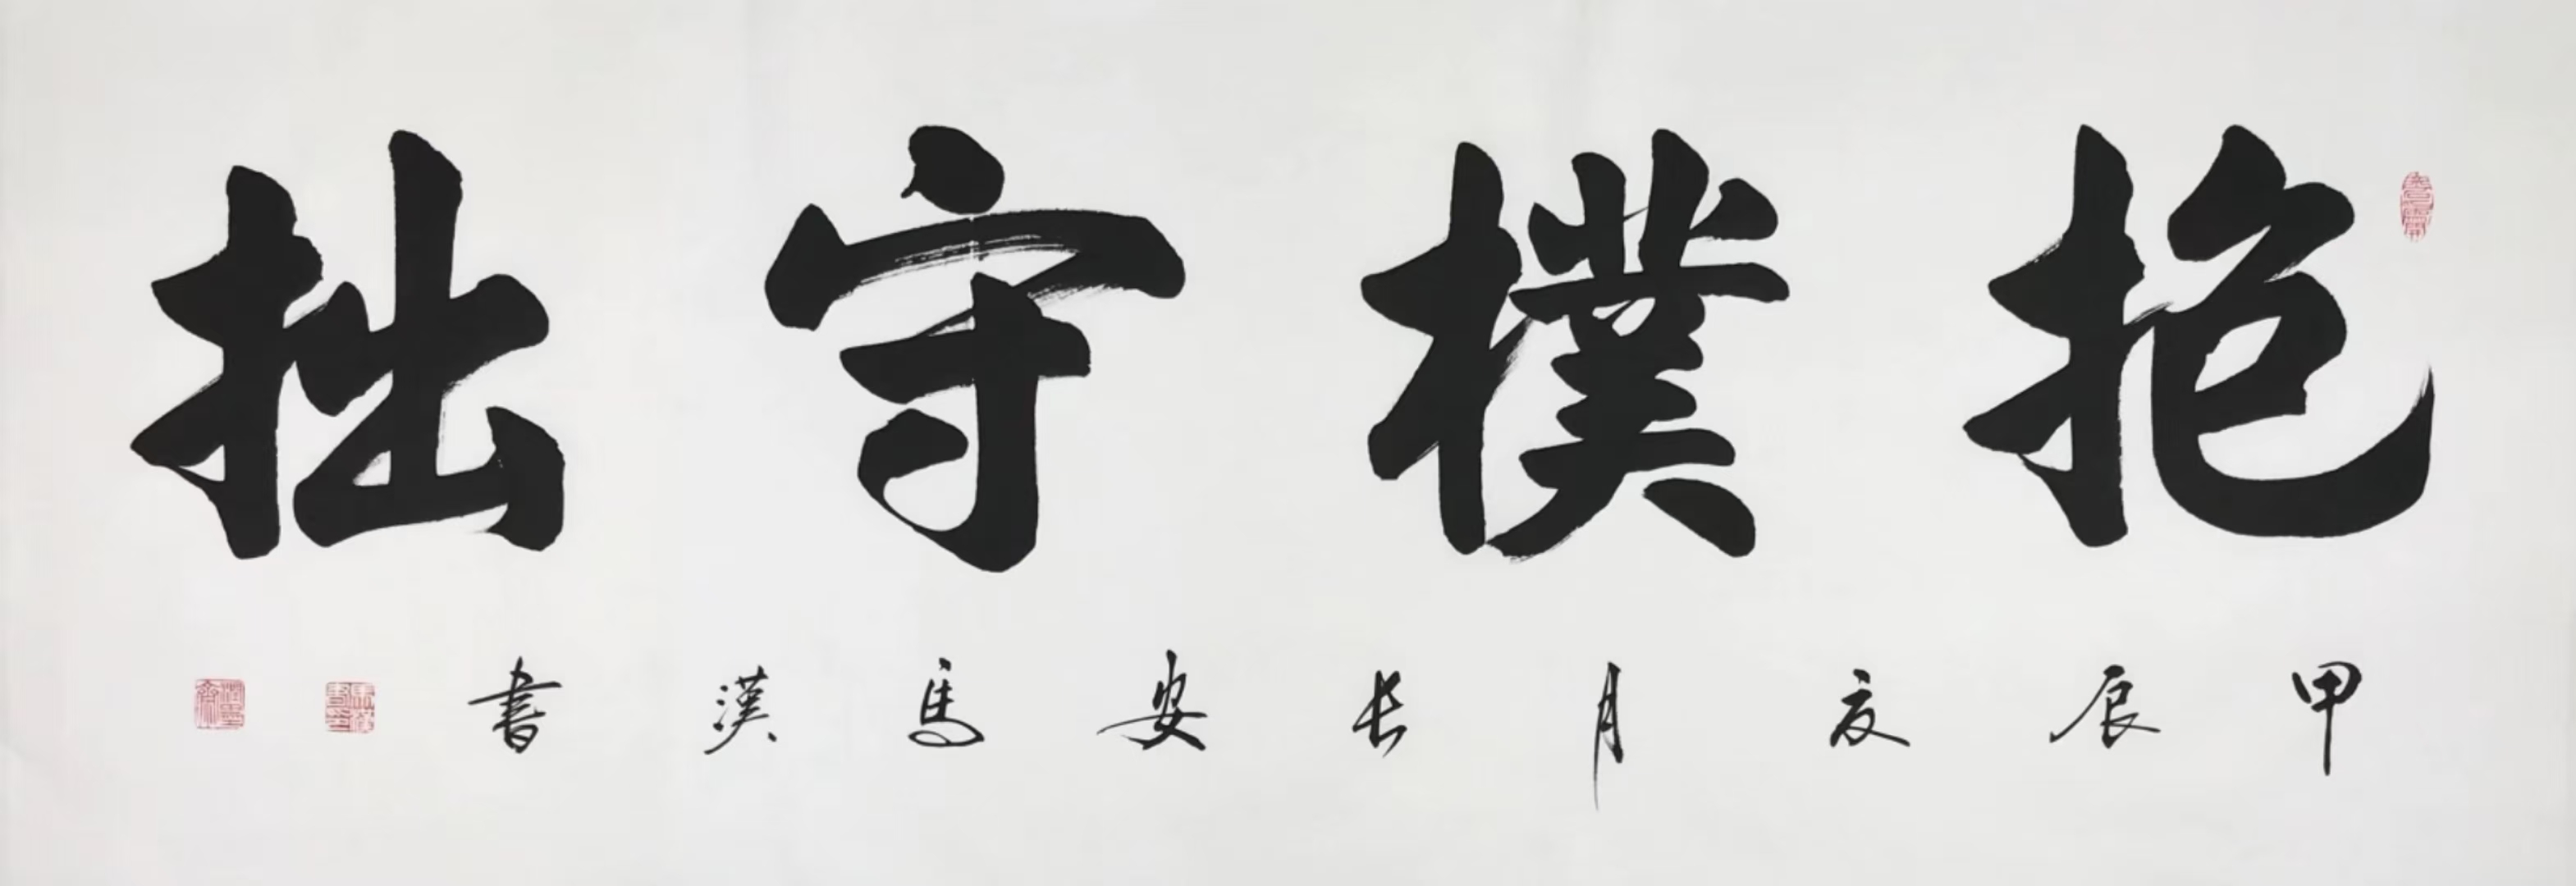 抱樸守拙
甲辰夏月長安馬漢書